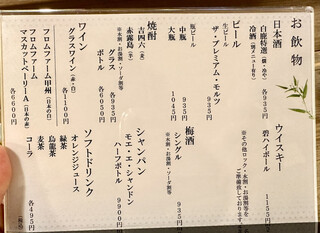 お飲物
日本酒
白鹿特選（燗・冷や）
各935円
冷酒
ビール
生ビール
ザ・プレミアム・モルツ
935円
瓶ビール
中瓶
935円
大瓶
1045円
焼酎
吉四六（麦）
赤霧島（芋）
※水割・お湯割・ソーダ割等
グラス
各935円
ボトル
各6050円
ワイン
グラスワイン（赤・白）
各1100円
フロムファーム甲州（日本の白）
フロムファーム
マスカットベーリーA（日本の赤）
各6600円
ウイスキー
碧ハイボール
1155円
※その他ロック・水割・お湯割等を
ご準備致しております。
梅酒
シングル
935円
※水割・お湯割・ソーダ割等
シャンパン
モエ・エ・シャンドン
ハーフボトル
9900円
ソフトドリンク
オレンジジュース
緑茶
烏龍茶
麦茶
コーラ
各495円